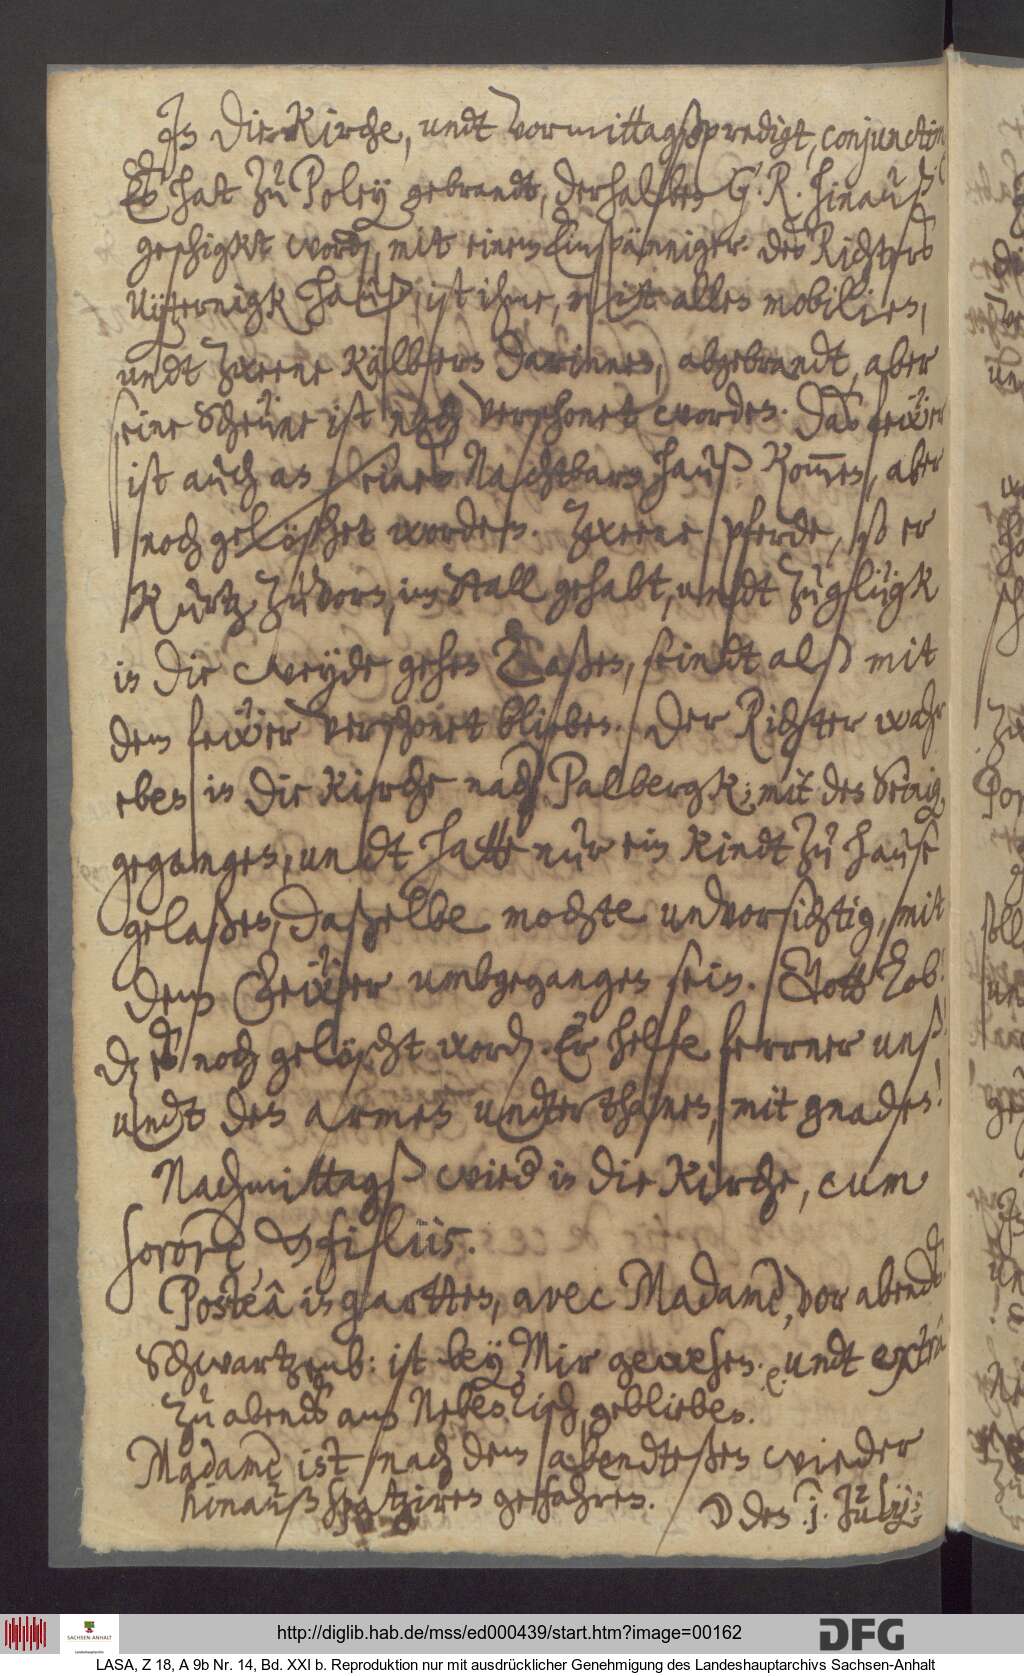 In die Kirche, undt vormittagspredigt, conjunctim
Es hat zu Poley gebrandt, derhalben G. R. hinauß
geschigkt word, mit einem Einspänniger. des Richters
haüß, ist ihme, mit alles mobilien,
undt zweene Kälbern darinnen, abgebrandt, aber
seine Scheüne ist noch verschonet worden. Das feẅer
ist auch an seines Nachtbars hauß kom̅en, aber
noch geleschet worden. Zweene pferde, so er
kurtz zuvorn, im Stall gehabt, undt zu glügk
in die weyde gehen laßen, seindt alß mit
dem feẅer verschonet blieben. Der Richter wahr
eben in die Kirche nach Palbergk, mit den Seinig
gegangen, undt hatte nur ein Kindt zu hause
gelaßen, daßelbe mochte undvorsichtig, mit
dem feẅer umbgegangen sein. Gott lob!
dz es noch gelöscht word. Er helfe ferrner unß!
undt den armen undterthanen, mit gnaden!
Nachmittagß wied in die Kirche, cum
sorore, & filiis.
Postea in gartten, avec Madame, vor abends
Schwartzenb: ist bey Mir gewesen. undt extra
zu abends am Neben Tisch, geblieben.
Madame ist nach dem abendteßen wieder
hinauß spatziren gefahren.
☽ den 1. July:
http://diglib.hab.de/mss/ed000439/start.htm?image=00162
DFG
SACHSEN-ANHALT
LASA, Z 18, A 9b Nr. 14, Bd. XXI b. Reproduktion nur mit ausdrücklicher Genehmigung des Landeshauptarchivs Sachsen-Anhalt